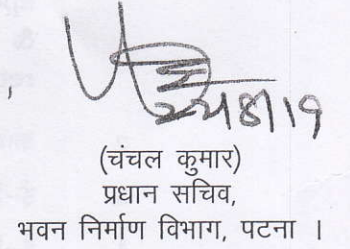 (चंचल कुमार)
प्रधान सचिव,
भवन निर्माण विभाग, पटना ।